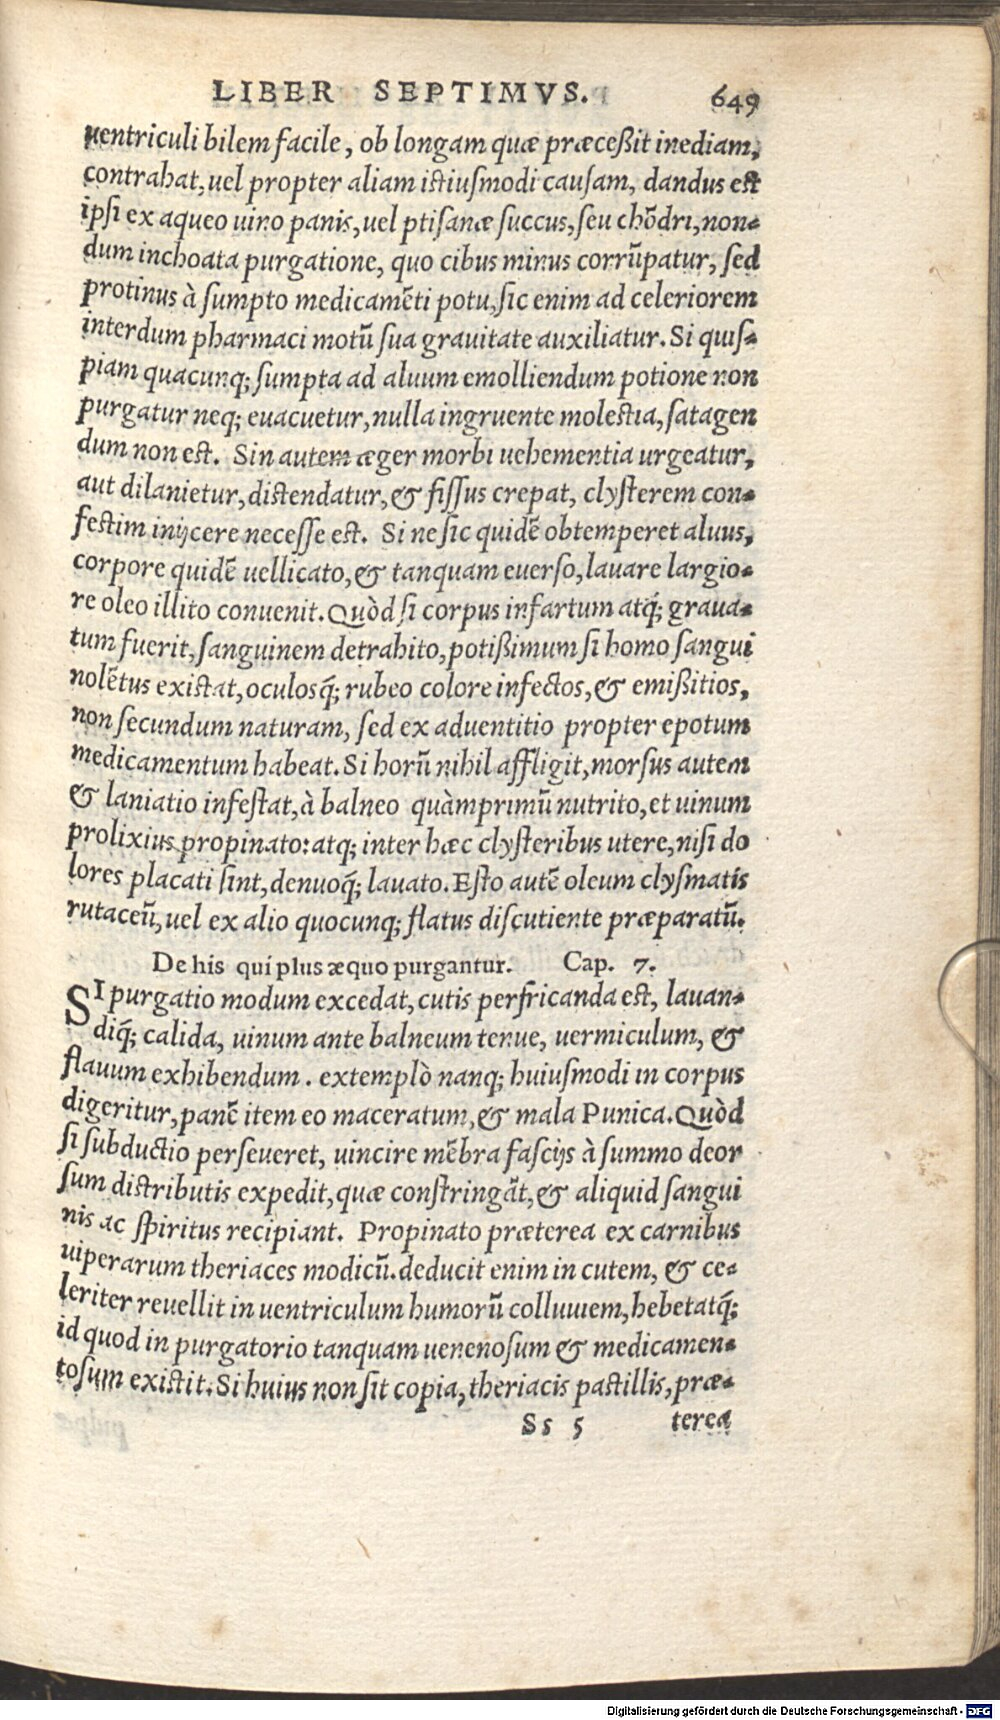 LIBER SEPTIMVS. 649
uentriculi bilem facile, ob longam quæ præceßit inediam,
contrahat, uel propter aliam istiusmodi causam, dandus est
ipsi ex aqueo uino panis, uel ptisanæ succus, seu chõdri, non-
dum inchoata purgatione, quo cibus minus corrũpatur, sed
protinus à sumpto medicamẽti potu, sic enim ad celeriorem
interdum pharmaci motũ sua grauitate auxiliatur. Si quis-
piam quacunq; sumpta ad aluum emolliendum potione non
purgatur neq; euacuetur, nulla ingruente molestia, satagen
dum non est. Sin autem æger morbi uehementia urgeatur,
aut dilanietur, distendatur, & fissus crepat, clysterem con-
festim inijcere necesse est. Si ne sic quidẽ obtemperet aluus,
corpore quidẽ uellicato, & tanquam euerso, lauare largio-
re oleo illito conuenit. Quòd si corpus infartum atq; graua-
tum fuerit, sanguinem detrahito, potißimum si homo sangui
nolẽtus existat, oculosq́; rubeo colore infectos, & emißitios,
non secundum naturam, sed ex aduentitio propter epotum
medicamentum habeat. Si horũ nihil affligit, morsus autem
& laniatio infestat, à balneo quàmprimũ nutrito, et uinum
prolixius propinato: atq; inter hæc clysteribus utere, nisi do
lores placati sint, denuoq́; lauato. Esto autẽ oleum clysmatis
rutaceũ, uel ex alio quocunq; flatus discutiente præparatũ.
De his qui plus æquo purgantur. Cap. 7.
SI purgatio modum excedat, cutis perfricanda est, lauan-
diq́; calida, uinum ante balneum tenue, uermiculum, &
flauum exhibendum. extemplò nanq; huiusmodi in corpus
digeritur, panẽ item eo maceratum, & mala Punica. Quòd
si subductio perseueret, uincire mẽbra fascijs à summo deor
sum distributis expedit, quæ constringãt, & aliquid sangui
nis ac spiritus recipiant. Propinato præterea ex carnibus
uiperarum theriaces modicũ. deducit enim in cutem, & ce-
leriter reuellit in uentriculum humorũ colluuiem, hebetatq́;
id quod in purgatorio tanquam uenenosum & medicamen-
tosum existit. Si huius non sit copia, theriacis pastillis, præ-
Ss 5 terea
Digitalisierung gefördert durch die Deutsche Forschungsgemeinschaft - DFG